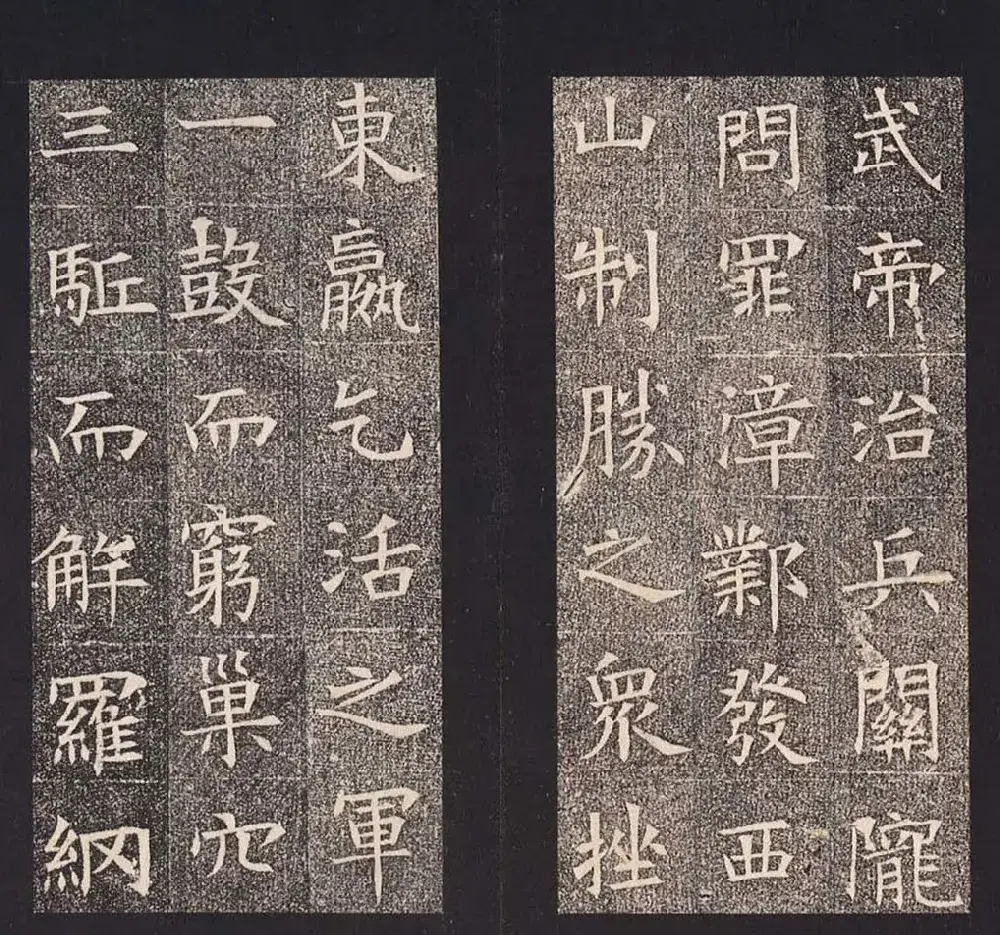 武帝治兵關隴
問罪漳鄴發西
山制勝之衆挫
東嬴乞活之軍
一鼓而窮巢穴
三駈而解羅網